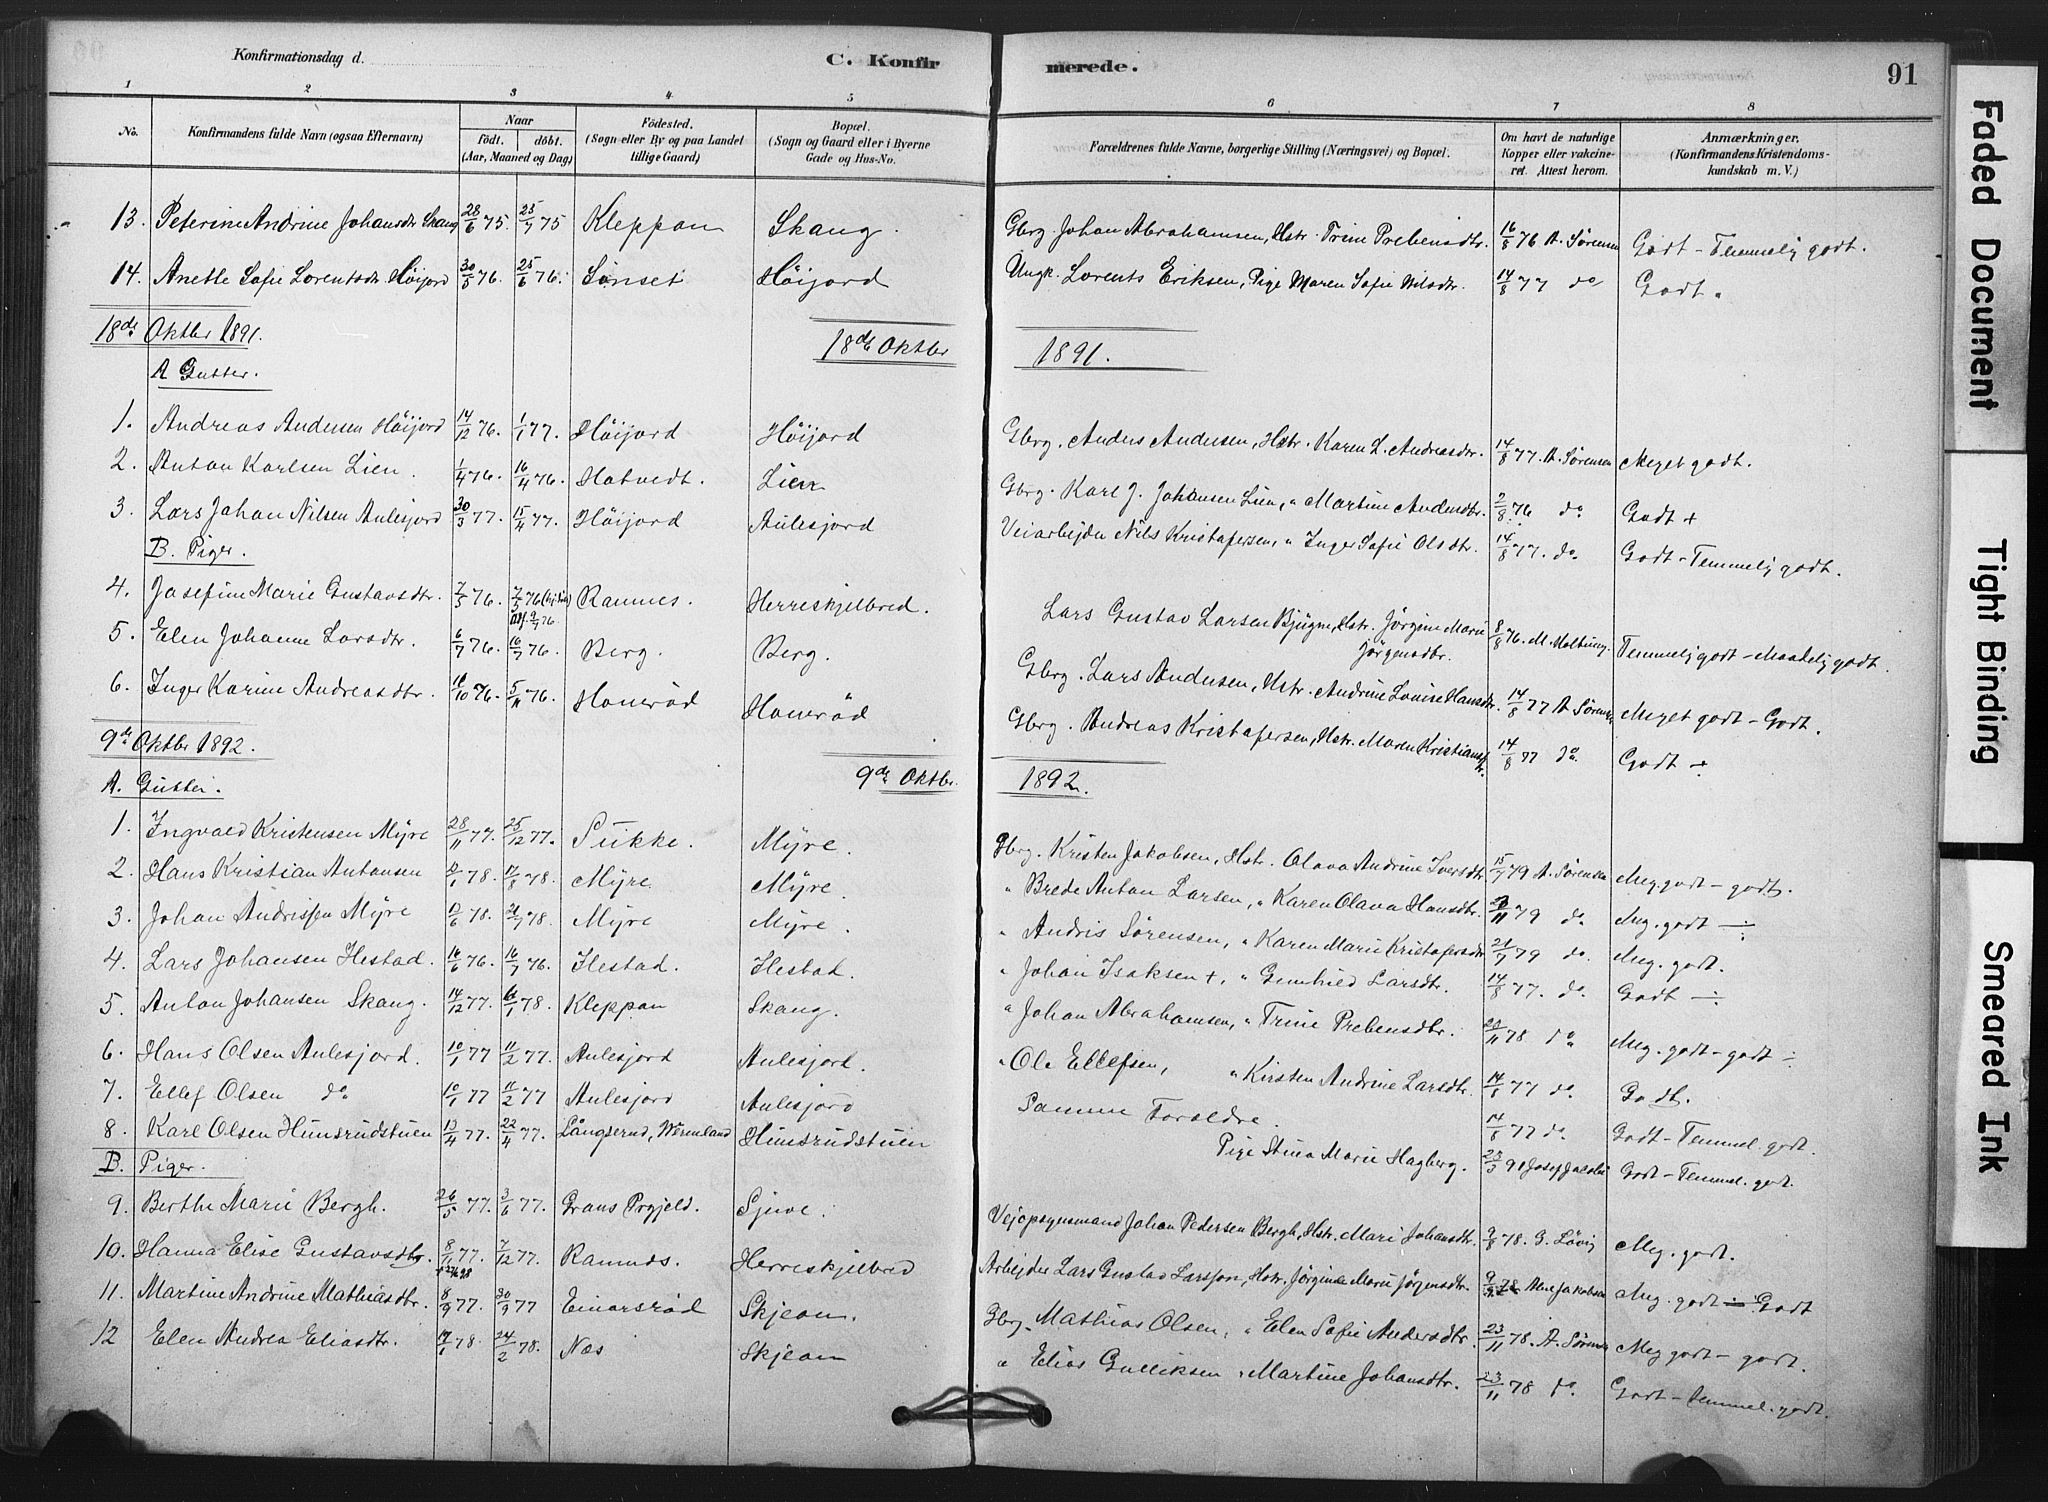 Konfirmationsdag d.
C. Konfir
merede.
91
1 2 3 4 5 6 7 8
No. Konfirmandens fulde Navn (ogsaa Efternavn) Naar født. døbt. (Aar, Maaned og Dag) Fødested. (Sogn eller By og paa Landet tillige Gaard) Bopæl. (Sogn og Gaard eller i Byerne Gade og Hus-No. Forældrenes fulde Navne, borgerlige Stilling (Næringsvei) og Bopæl. Om havt de naturlige Kopper eller vakcineret. Attest herom. Anmærkninger. (Konfirmandens Kristendomskundskab m. V.)
13. Peterine Andrine Johansdtr Skang 28/6 75. 25/7 75 Kleppan Skang. Gbrg. Johan Abrahamsen, Hstr. Trine Prebensdtr. 16/8 76 A. Sørensen Godt - Temmelig godt.
14. Anette Sofie Lorentsdtr Höijord 30/5 76. 25/6 76. Sönset Höijord Ungk. Lorents Eriksen, Pige Maren Sofie Nilsdtr. 14/8 77 do Godt
18de Oktber 1891. 18de Oktbr 1891.
A Gutter.
1. Andreas Andersen Höijord 14/12 76. 1/1 77. Höijord Höijord Gbrg. Anders Andersen, Hstr. Karen L. Andreasdtr. 14/8 77. A. Sørensen Meget godt.
2. Anton Karlsen Lien. 1/4 76. 16/4 76. Hotvedt. Lien Gbrg. Karl J. Johansen Lien, " Martine Andersdtr. 2/8 76 do Godt +
3. Lars Johan Nilsen Aulesjord 30/3 77. 15/4 77. Höijord Aulesjord Veiarbejder Nils Kristofersen, " Inger Sofie Olsdtr. 14/8 77. do. Godt - Temmelig godt.
B. Piger.
4. Josefine Marie Gustavsdtr. 7/5 76. 7/5 76 Ramnes. Herreskjelbred. Lars Gustav Larsen Bjügne, Hstr. Jörgine Marie Jörgensdtr. 8/8 76. M. Holtung. Temmelig godt - Maadelig godt.
5. Elen Johanne Larsdtr. 6/7 76. 16/7 76. Berg. Berg. Gbrg. Lars Andersen, Hstr. Andrine Lovise Hansdtr. 14/8 77 A Sørensen Meget godt - Godt.
6. Inger Karine Andreasdtr. 16/10 76. 5/11 76. Honeröd Honeröd Gbrg. Andreas Kristofersen, Hstr. Maren Kristiansdtr. 14/8 77 do. Godt ÷
9de Oktbr 1892. 9de Oktbr. 1892.
A. Gutter.
1. Ingvald Kristensen Myre 28/11 77. 25/12 77. Sukke. Myre. Gbrg. Kristen Jakobsen, Hstr. Olava Andrine Iversdtr 15/7 79 A. Sørensen Meg. godt - godt.
2. Hans Kristian Antonsen 78. 78. Myre. Myre. " Brede Anton Larsen, " Karen Olava Hansdtr. 79 do Meg. godt ÷
3. Johan Andrissen Myre 78. 78. Myre Myre. " Andris Sørensen, " Karen Marie Kristofersdtr 21/7 79 do. Meg. godt.
4. Lars Johansen Hestad. 16/6 76. 16/7 76. Hestad. Hestad. " Johan Isaksen +, " Gunhild Larsdtr. 14/8 77. do Godt ÷
5. Anton Johansen Skang. 14/12 77. 78. Kleppan Skang. " Johan Abrahamsen, " Trine Prebensdtr. 78 do Meg. godt - godt ÷
6. Hans Olsen Aulesjord. 10/1 77 11/2 77. Aulesjord Aulesjord. " Ole Ellefsen, " Kirsten Andrine Larsdtr. 14/8 77 do. Godt.
7. Ellef Olsen do 10/1 77 11/2 77 Aulesjord Aulesjord Samme Foræeldre. 14/8 77 do. Godt - Temmel. godt.
8. Karl Olsen Hunsrudstuen 13/4 77. 22/4 77. Långserud, Wermland Hunsrudstuen Pige Stina Marie Hagberg. 23/3 91 Josef Jacobi Godt - Temmel. godt.
B. Piger.
9. Berthe Marie Bergh. 26/5 77. 3/6 77. Grans Prgjeld. Sjuve. Vejopsynsmand Johan Pedersen Bergh, Hstr. Mari Johansdtr. 9/8 78. G. Lövig Meg. godt.
10. Hanna Elise Gustavsdtr. 77. 7/12 77. Ramnes. Herreskjelbred Arbejder Lars Gustav Larsson, Hstr. Jörgine Marie Jörgensdtr. 78 Jakobsen Meg. godt ÷ Godt
11. Martine Andrine Mathiasdtr. 8/9 77. 30/9 77 Einarsröd Skjeau. Gbrg. Mathias Olsen, " Elen Sofie Andersdtr. 23/11 78. A. Sørensen Meg godt - godt.
12 Elen Andrea Eliasdtr. 78. 24/2 78. Næs Skjeau " Elias Gulliksen " Martine Johansdtr. 23/11 78 do. Godt - Temmel. godt.
Faded Document
Tight Binding
Smeared Ink